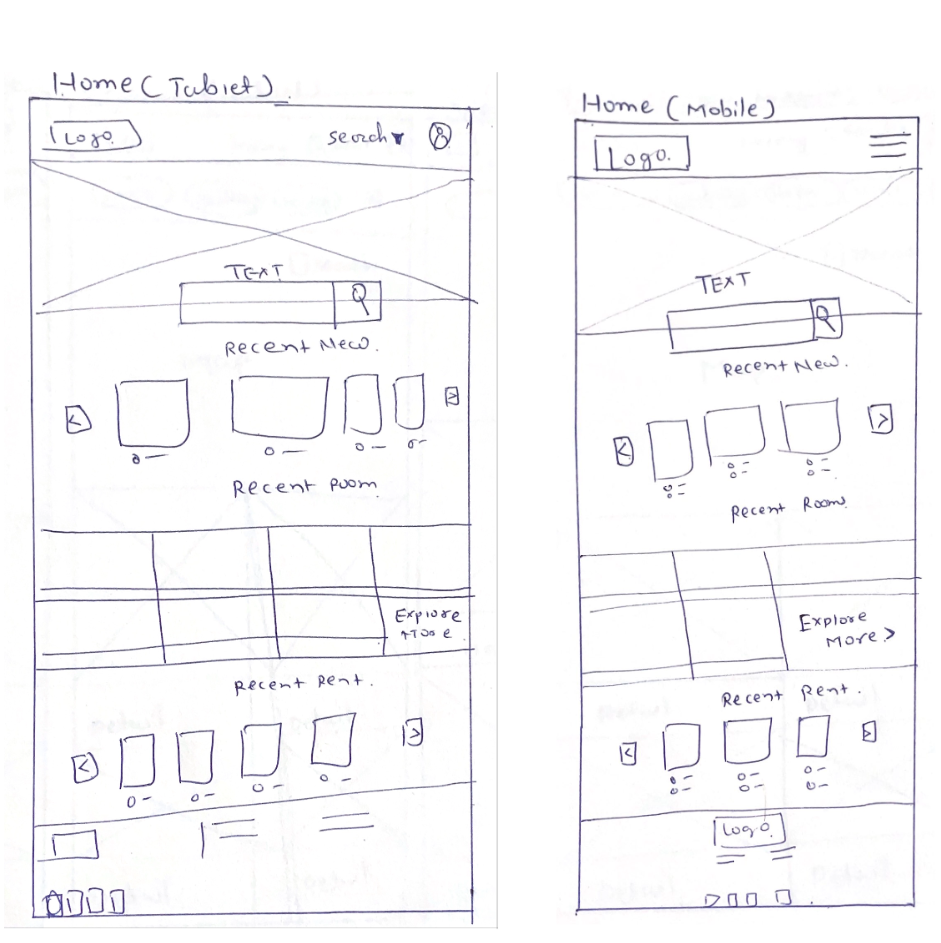 Home (Tablet)
Logo
search
TEXT
Recent New.
Recent Room
Explore
More
Recent Rent.
Home (Mobile)
Logo.
TEXT
Recent New.
Recent Room
Explore
More >
Recent Rent.
Logo